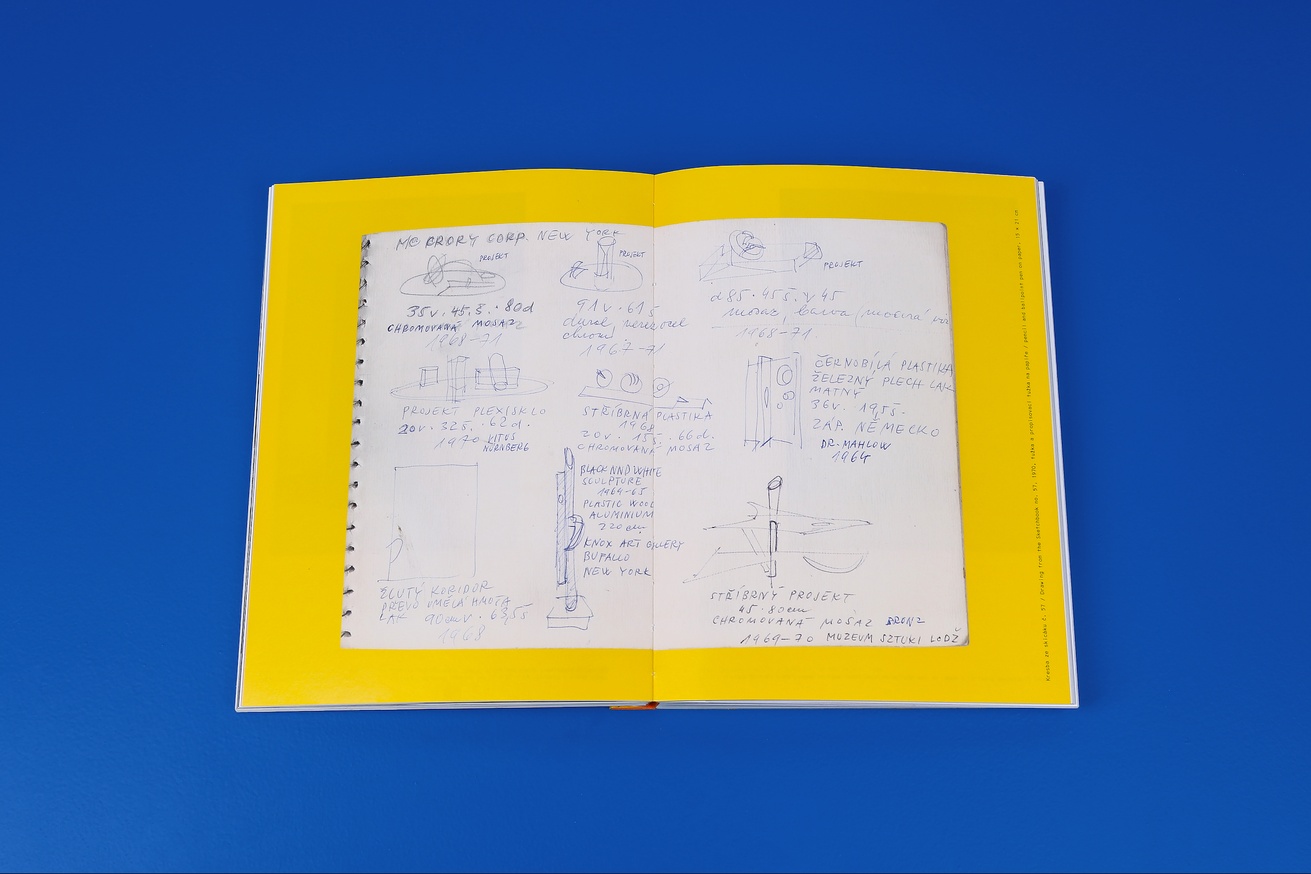 MC CRORY CORP. NEW YORK
PROJEKT
35v. 45.š. . 80d
CHROMOVANÁ MOSAZ
1968-71
PROJEKT
91v . 61š
dural,
chrom
1967-71
PROJEKT
d85 . 45š. v45
mosaz, barva
1968-71.
PROJEKT PLEXISKLO
20v. 32š. . 62d.
1970 VITUS
NÜRNBERG
STŘÍBRNÁ PLASTIKA
1968
20v. 15š. . 66d.
CHROMOVANÁ MOSAZ
ČERNOBÍLÁ PLASTIKA
ŽELEZNÝ PLECH LAK
MATNÝ
36v. 19,5š.
ZÁP. NĚMECKO
DR. MAHLOW
1964
ŽLUTÝ KORIDOR
DŘEVO UMĚLÁ HMOTA
LAK 90cm v . 63,5š
1968
BLACK NND WHITE
SCULPTURE
1964-65
PLASTIC WOOD
ALUMINIUM
220 cm
KNOX ART GALLERY
BUFALLO
NEW YORK
STŘÍBRNÝ PROJEKT
45 . 80cm
CHROMOVANÁ MOSAZ BRONZ
1969-70 MUZEUM SZTUKI LODŽ
Kresba ze skicáku č. 57 / Drawing from the Sketchbook no. 57, 1970, tužka a propisovací tužka na papíře / pencil and ballpoint pen on paper, 15 x 21 cm